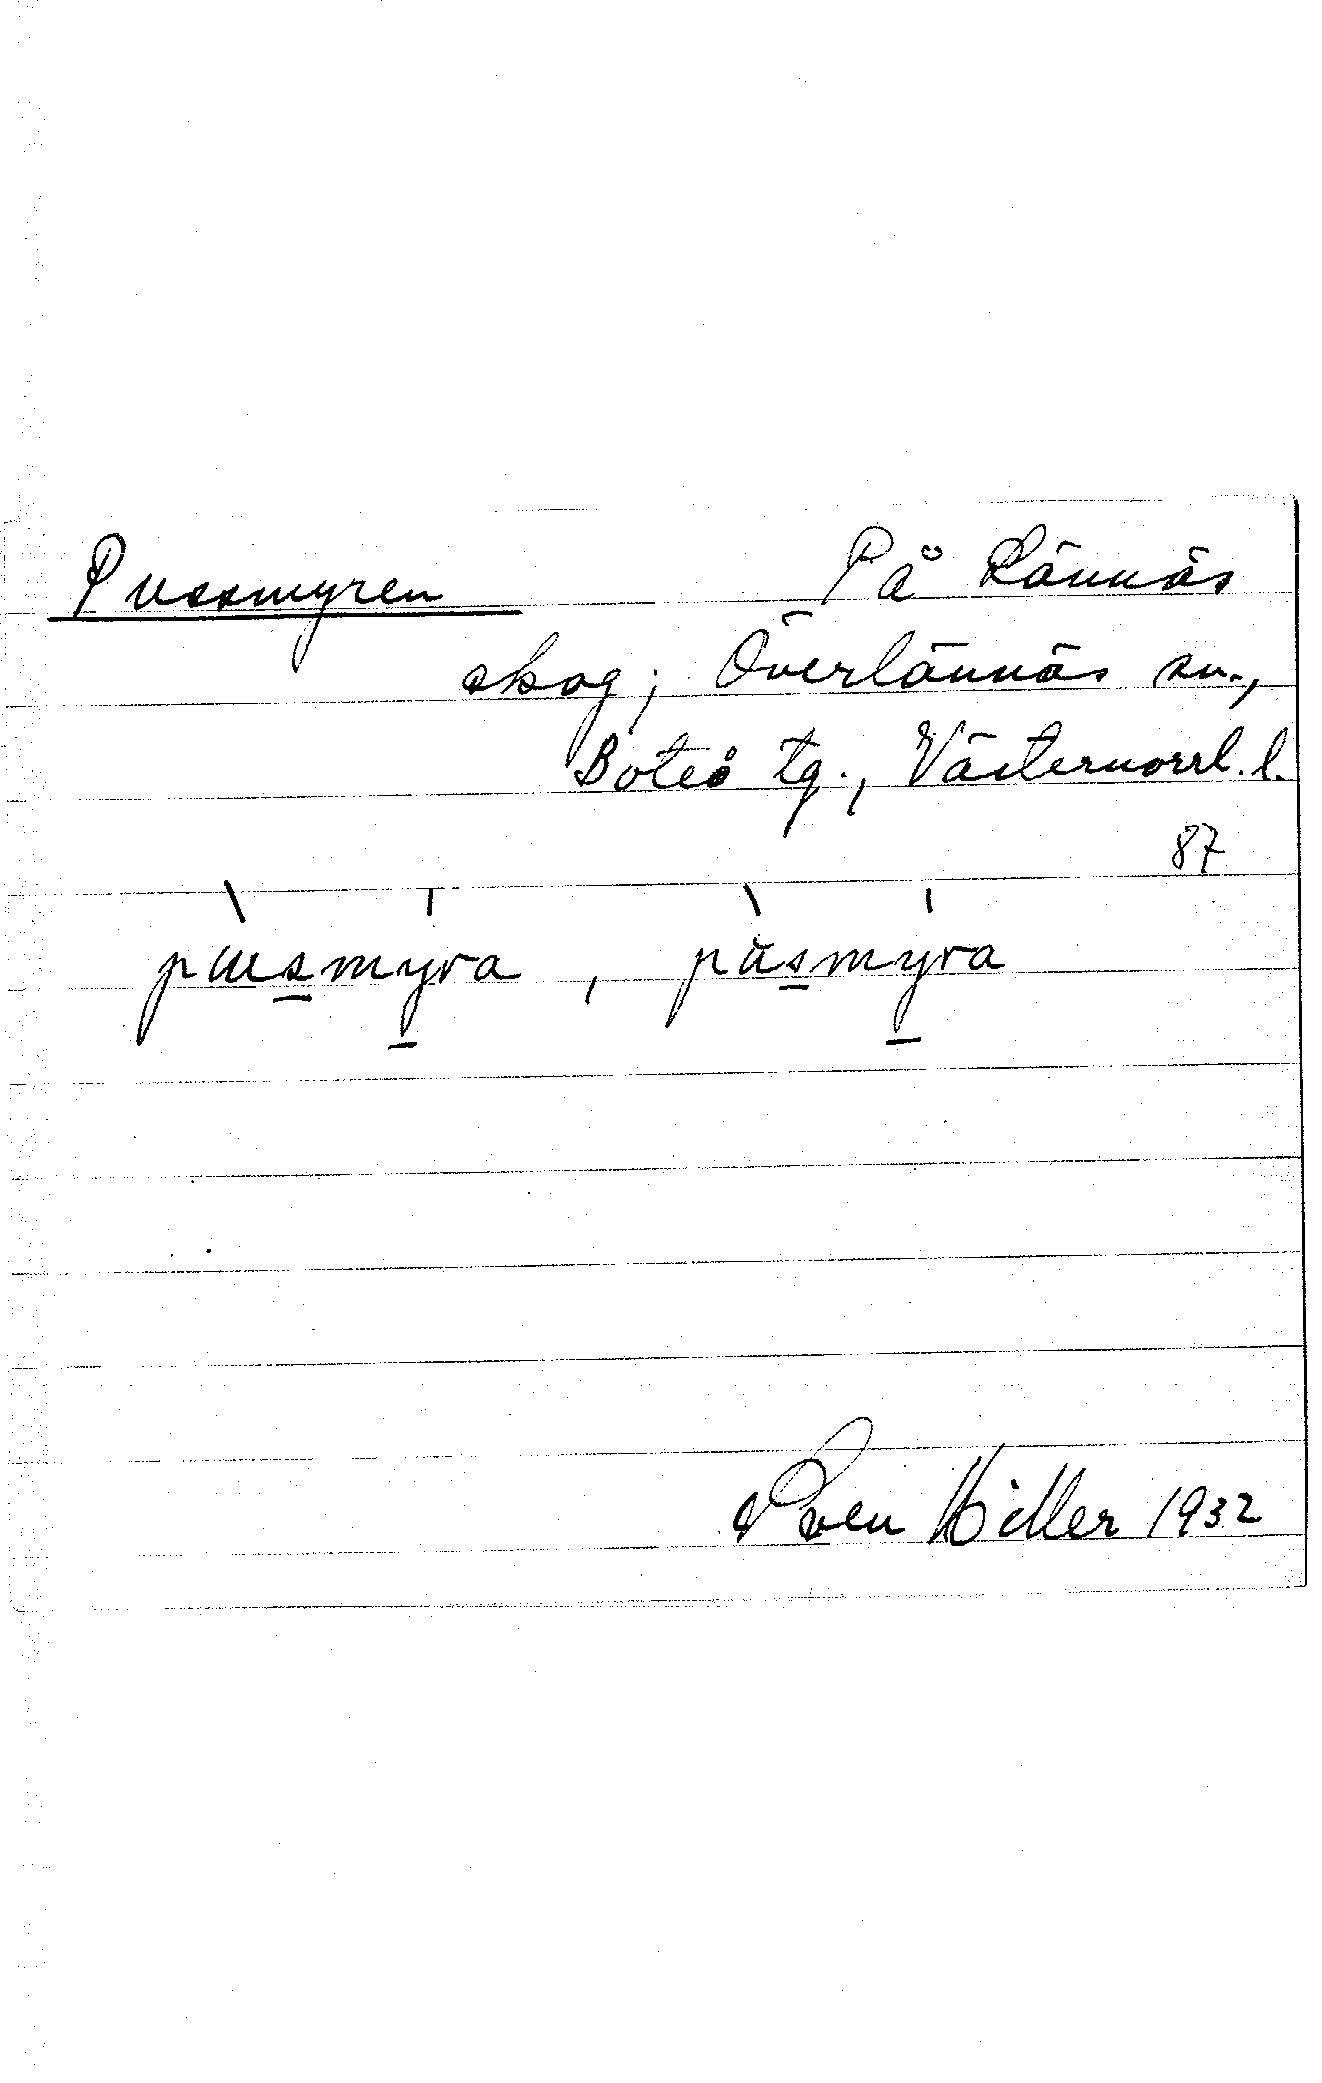 Pussmyren På Lännäs
skog; Överlännäs sn.,
Boteå tg., Västernorrl. l.
87
pusmyra, påsmyra
Sven Hidler 1932